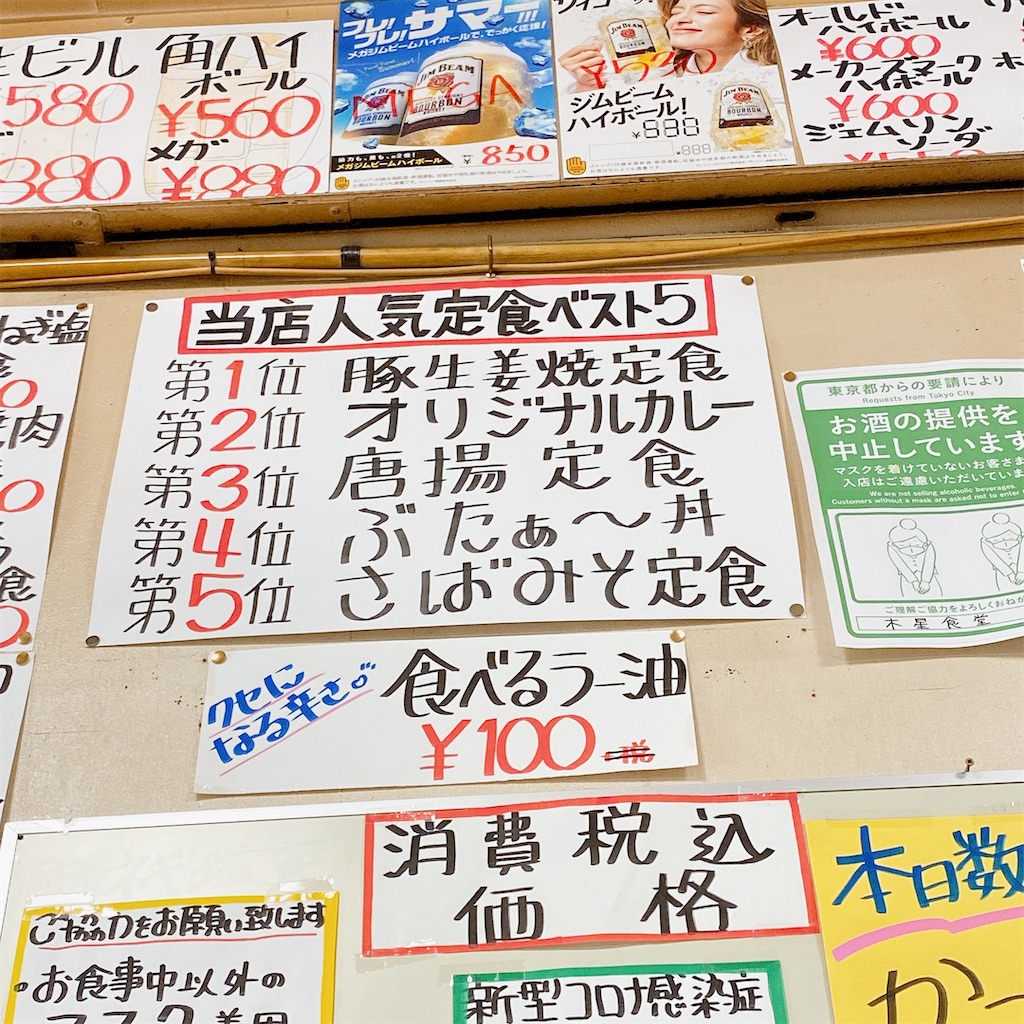 ビール
¥580
380
角ハイ
ボール
¥560
メガ
¥880
フレ!フレ!サマー!!!
メガジムビームハイボールで、でっかく応援!
JIM BEAM
BOURBON
メガジムビームハイボール
¥850
¥530
ジムビーム
ハイボール!
JIM BEAM
BOURBON
オールド
ハイボール
¥600
メーカーズマーク
ハイボール
¥600
ジェムソン
ソーダ
ねぎ塩
肉
食
当店人気定食ベスト5
第1位 豚生姜焼定食
第2位 オリジナルカレー
第3位 唐揚定食
第4位 ぶたぁ〜丼
第5位 さばみそ定食
東京都からの要請により
Requests from Tokyo City
お酒の提供を
中止しています
マスクを着けていないお客さま
入店はご遠慮いただいていま
We are not selling alcoholic beverages.
Customers without a mask are asked not to enter
ご理解ご協力をよろしくおねが
木星食堂
クセに
なる辛さ
食べるラー油
¥100 +税
消費税込
価格
本日数
か
ご協力をお願い致します
・お食事中以外の
マスク着用
新型コロナ感染症